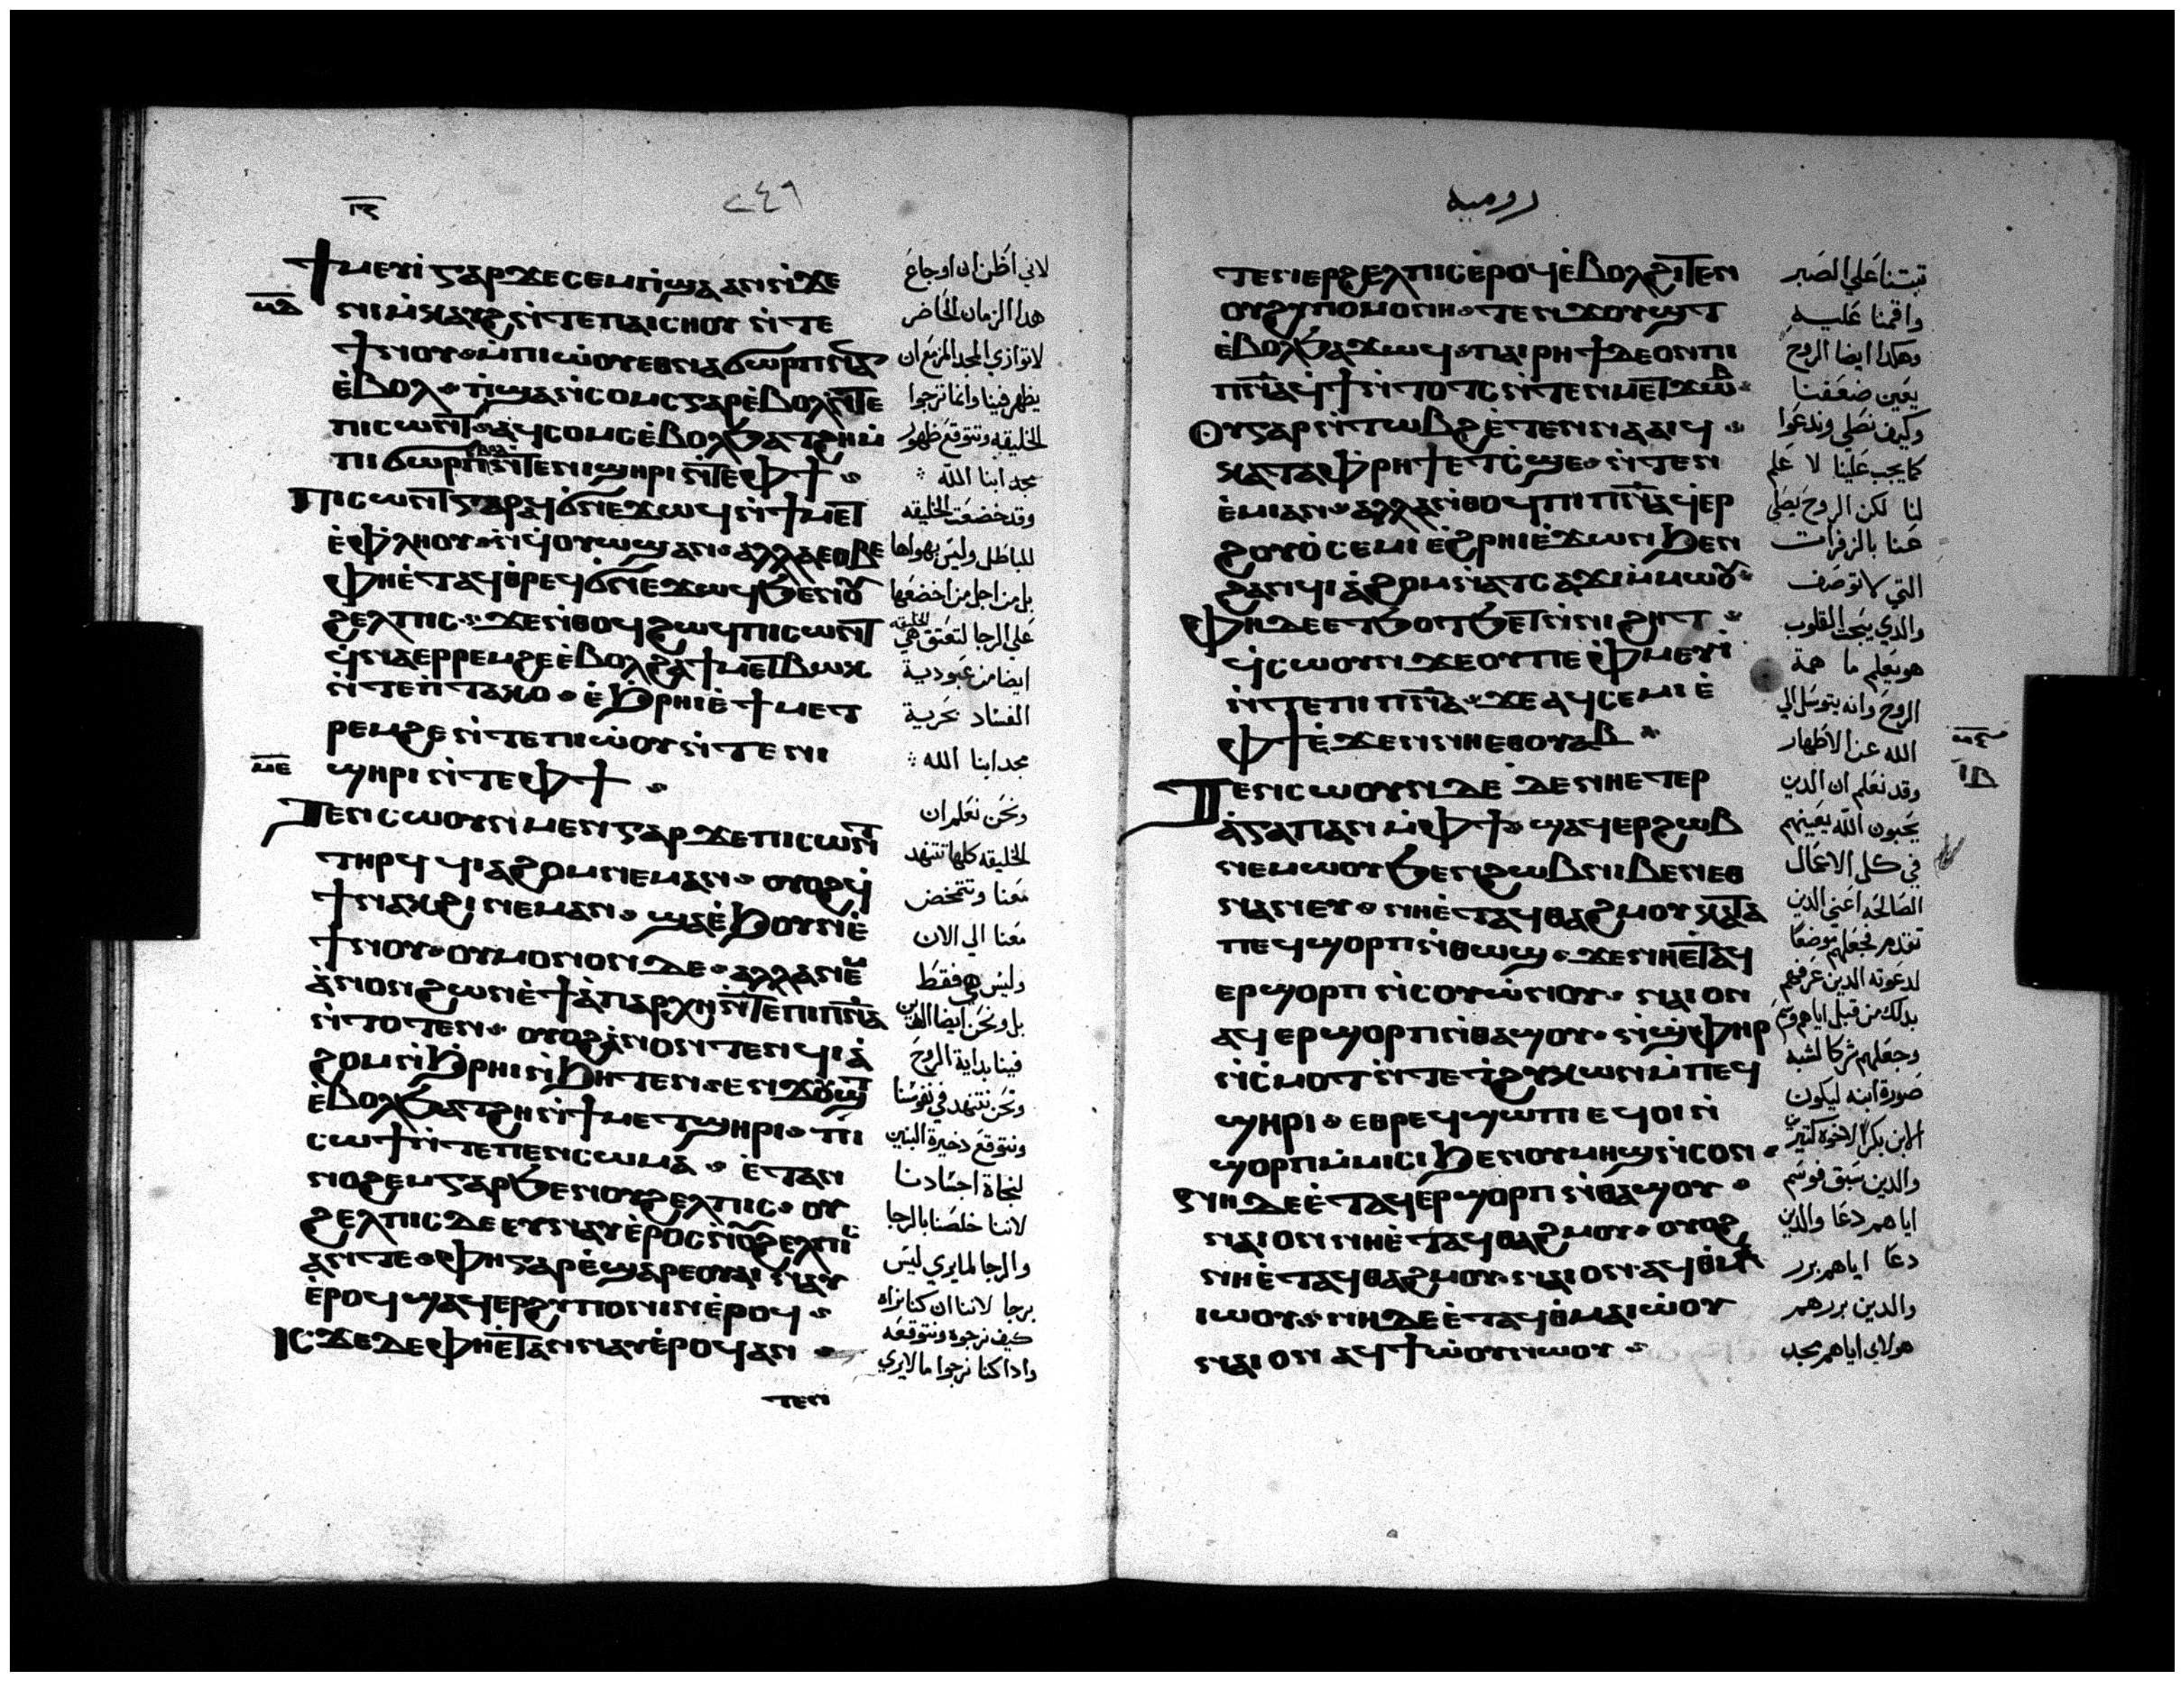 ⲓⲋ
٢٤٦
ϯⲙⲉⲩⲓ̀ ⲅⲁⲣ ϫⲉ ⲥⲉⲙⲡ̀ϣⲁ ⲁⲛ ⲛ̀ϫⲉ
ⲙⲇ
ⲛⲓⲙ̀ⲕⲁⲩϩ ⲛ̀ⲧⲉ ⲡⲁⲓⲥⲏⲟⲩ ⲛ̀ⲧⲉ
ϯⲛⲟⲩ ⲙ̀ⲡⲓⲱ̀ⲟⲩ ⲉⲑⲛⲁϭⲱⲣⲡ ⲛⲁⲛ
ⲉ̀ⲃⲟⲗ ⲡ̀ϣⲁⲛⲥⲟⲙⲥ ⲅⲁⲣ ⲉ̀ⲃⲟⲗ ⲛ̀ⲧⲉ
ⲡⲓⲥⲱⲛⲧ ⲁϥⲥⲟⲙⲥ ⲉ̀ⲃⲟⲗϧⲁⲧϩⲏ ⲙ̀
ⲡⲓϭⲱⲣⲡ ⲉⲃⲟⲗ ⲛ̀ⲧⲉ ⲛⲓϣⲏⲣⲓ ⲛ̀ⲧⲉ ⲫϯ
ⲡⲓⲥⲱⲛⲧ ⲅⲁⲣ ⲁϥϭⲛⲉϫⲱϥ ⲛ̀ϯⲙⲉⲧ
ⲉ̀ⲫⲗⲏⲟⲩ ⲛ̀ϥⲟⲩⲱϣ ⲁⲛ ⲁⲗⲗⲁ ⲉⲑⲃⲉ
ⲫⲏ ⲉ̀ⲧⲁϥⲑ̀ⲣⲉϥϭ̀ⲛⲉϫⲱϥ ϧⲉⲛ ⲟⲩ
ϩⲉⲗⲡⲓⲥ ϫⲉ ⲛ̀ⲑⲟϥ ϩⲱϥ ⲡⲓⲥⲱⲛⲧ
ϥ̀ⲛⲁⲉⲣⲣⲉⲙϩⲉ ⲉ̀ⲃⲟⲗϩⲁ ϯⲙⲉⲧⲃⲱⲕ
ⲛ̀ⲧⲉ ⲡ̀ⲧⲁⲕⲟ ⲉ̀ϧⲣⲏⲓ ⲉ̀ϯⲙⲉⲧ
ⲣⲉⲙϩⲉ ⲛ̀ⲧⲉ ⲡⲓⲱ̀ⲟⲩ ⲛ̀ⲧⲉ ⲛⲓ
ⲙⲉ
ϣⲏⲣⲓ ⲛ̀ⲧⲉ ⲫϯ
ⲧⲉⲛⲥⲱⲟⲩⲛ ⲙⲉⲛ ⲅⲁⲣ ϫⲉ ⲡⲓⲥⲱⲛⲧ
ⲧⲏⲣϥ ϥⲓⲁϩⲟⲙ ⲛⲉⲙⲁⲛ ⲟⲩⲟϩ ϥ̀
ϯⲛⲁⲕϩⲓ ⲛⲉⲙⲁⲛ ϣⲁ ⲉ̀ϧⲟⲩⲛ ⲉ̀
ϯⲛⲟⲩ ⲟⲩ ⲙⲟⲛⲟⲛ ⲇⲉ ⲁⲗⲗⲁ ⲛⲉⲙ
ⲁ̀ⲛⲟⲛ ϩⲱⲛ ⲉ̀ϯⲁ̀ⲡⲁⲣⲭⲏ ⲛ̀ⲧⲉ ⲡⲓⲡⲛⲁ
ⲛ̀ⲧⲟⲧⲉⲛ ⲟⲩⲟϩ ⲁ̀ⲛⲟⲛ ⲧⲉⲛϥⲓⲁ̀
ϩⲟⲙ ⲛ̀ϧⲣⲏⲓ ⲛ̀ϧⲏⲧⲉⲛ ⲉⲛϫⲟⲩϣⲧ
ⲉ̀ⲃⲟⲗϧⲁⲧϩⲏ ⲛ̀ϯⲙⲉⲧϣⲏⲣⲓ ⲡⲓ
ⲥⲱϯ ⲛ̀ⲧⲉ ⲡⲉⲛⲥⲱⲙⲁ ⲉ̀ⲧⲁⲛ
ⲛⲟϩⲉⲙ ⲅⲁⲣ ϧⲉⲛ ⲟⲩϩⲉⲗⲡⲓⲥ ⲟⲩ
ϩⲉⲗⲡⲓⲥ ⲇⲉ ⲉⲩⲛⲁⲩ ⲉ̀ⲣⲟⲥ ⲛ̀ⲟⲩϩⲉⲗⲡⲓⲥ
ⲁⲛ ⲧⲉ ⲫⲏ ⲅⲁⲣ ⲉ̀ϣⲁⲣⲉ ⲟⲩⲁⲓ ⲛⲁⲩ
ⲉ̀ⲣⲟϥ ϣⲁϥⲉⲣϩⲩⲡⲟⲙⲓⲛⲓⲛ ⲉ̀ⲣⲟϥ
ⲓⲥϫⲉ ⲇⲉ ⲫⲏ ⲉ̀ⲧⲁⲛⲛⲁⲩ ⲉ̀ⲣⲟϥ ⲁⲛ
ⲧⲉⲛ
لاني اظن ان اوجاع
هدا الزمان الحاضر
لاتوازي المجد المزمع ان
يظهر فينا وانما ترجوا
الخليقه وتتوقع ظهور
مجد ابنا الله
وقد خضعت الخليقه
للباطل وليس بهواها
بل من اجل من اخضعها
على الرجا لتعتق هي الخليقه
ايضا من عبودية
الفساد بحرية
مجد ابنا الله
ونحن نعلم ان
الخليقه كلها تتنهد
معنا وتتمخض
معنا الي الان
وليس هي فقط
بل ونحن ايضا الدين
فينا بداية الروح
ونحن نتنهد في نفوسنا
ونتوقع دخيرة البنين
لنجاة اجسادنا
لاننا خلصنا بالرجا
والرجا لما يري ليس
برجا لاننا ان كنا نراه
كيف نرجوه ونتوقعه
وادا كنا نرجوا ما لا يري
روميه
ⲧⲉⲛⲉⲣϩⲉⲗⲡⲓⲥ ⲉ̀ⲣⲟϥ ⲉ̀ⲃⲟⲗϩⲓⲧⲉⲛ
ⲟⲩϩⲩⲡⲟⲙⲟⲛⲏ ⲧⲉⲛϫⲟⲩϣⲧ
ⲉ̀ⲃⲟⲗϧⲁϫⲱϥ ⲡⲁⲓⲣⲏϯ ⲇⲉ ⲟⲛ ⲡⲓ
ⲡⲛⲁ ϥ̀ϯⲛ̀ⲧⲟⲧⲥ ⲛ̀ⲧⲉⲛⲙⲉⲧϫⲱⲃ
ⲟⲩ ⲅⲁⲣ ⲛ̀ⲧⲱⲃϩ ⲉ̀ⲧⲉⲛⲛⲁⲁⲓϥ
ⲕⲁⲧⲁ ⲫ̀ⲣⲏϯ ⲉⲧⲥ̀ϣⲉ ⲛ̀ⲧⲉⲛ
ⲉ̀ⲙⲓ ⲁⲛ ⲁⲗⲗⲁ ⲛ̀ⲑⲟϥ ⲡⲓⲡⲛⲁ ϥ̀ⲉⲣ
ϩⲟⲩⲟ̀ ⲥⲉⲙⲓ ⲉ̀ϩⲣⲏⲓ ⲉ̀ϫⲱⲛ ϧⲉⲛ
ϩⲁⲛϥⲓⲁ̀ϩⲟⲙ ⲛ̀ⲁⲧⲥⲁϫⲓ ⲙ̀ⲙⲱⲟⲩ
ⲫⲏ ⲇⲉ ⲉⲧϧⲟⲧϧⲉⲧ ⲛ̀ⲛⲓϩⲏⲧ
ϥ̀ⲥⲱⲟⲩⲛ ϫⲉ ⲟⲩ ⲡⲉ ⲫ̀ⲙⲉⲩⲓ̀
ⲛ̀ⲧⲉ ⲡⲓⲡⲛⲁ ϫⲉ ⲁϥⲥⲉⲙⲓ ⲉ̀
ⲫϯ ⲉ̀ϫⲉⲛ ⲛⲏ ⲉⲑⲟⲩⲁⲃ
ⲙⲋ
ⲓⲃ
ⲧⲉⲛⲥⲱⲟⲩⲛ ⲇⲉ ϫⲉ ⲛⲏ ⲉⲧⲉⲣ
ⲁ̀ⲅⲁⲡⲁⲛ ⲙ̀ⲫϯ ϣⲁϥⲉⲣϩⲱⲃ
ⲛⲉⲙⲱⲟⲩ ϧⲉⲛ ϩⲱⲃ ⲛⲓⲃⲉⲛ ⲉⲑ
ⲛⲁⲛⲉⲩ ⲛⲏ ⲉ̀ⲧⲁϥⲑⲁϩⲙⲟⲩ ⲕⲁⲧⲁ
ⲡⲉϥϣⲟⲣⲡ ⲛ̀ⲑⲱϣ ϫⲉ ⲛⲏ ⲉ̀ⲧⲁϥ
ⲉⲣϣⲟⲣⲡ ⲛ̀ⲥⲟⲩⲱ̀ⲛⲟⲩ ⲛⲁⲓ ⲟⲛ
ⲁϥⲉⲣϣⲟⲣⲡ ⲛ̀ⲑⲁϣⲟⲩ ⲛ̀ϣ̀ⲫⲏⲣ
ⲛ̀ⲥ̀ⲙⲟⲧ ⲛ̀ⲧⲉ ⲧ̀ϩⲩⲕⲱⲛ ⲙ̀ⲡⲉϥ
ϣⲏⲣⲓ ⲉⲑⲣⲉϥϣⲱⲡⲓ ⲉϥⲟⲓ ⲛ̀
ϣⲟⲣⲡ ⲙ̀ⲙⲓⲥⲓ ϧⲉⲛ ⲟⲩⲙⲏϣ ⲛ̀ⲥⲟⲛ
ⲛⲏ ⲇⲉ ⲉ̀ⲧⲁϥⲉⲣϣⲟⲣⲡ ⲛ̀ⲑⲁϣⲟⲩ
ⲛⲁⲓ ⲟⲛ ⲛⲏ ⲉ̀ⲧⲁϥⲑⲁϩⲙⲟⲩ ⲟⲩⲟϩ
ⲛⲏ ⲉ̀ⲧⲁϥⲑⲁϩⲙⲟⲩ ⲛⲁⲓ ⲟⲛ ⲁϥⲑⲙⲁ
ⲓⲱⲟⲩ ⲛⲏ ⲇⲉ ⲉ̀ⲧⲁϥⲑ̀ⲙⲁⲓⲱ̀ⲟⲩ
ⲛⲁⲓ ⲟⲛ ⲁϥϯⲱ̀ⲟⲩ ⲛⲱⲟⲩ
تبتنا علي الصبر
واقمنا عليه
وهكدا ايضا الروح
يعين ضعفنا
وكيف نصلي وندعوا
كما يجب علينا لا علم
لنا لكن الروح يصلي
عنا بالزفرات
التي لا توصف
والدي يبحت القلوب
هو يعلم ما همة
الروح وانه يتوسل الي
الله عن الاطهار
وقد نعلم ان الدين
يحبون الله يعينهم
في كل الاعمال
الصالحه اعني الدين
تقدم فجعلهم موضعا
لدعوته الدين عرفهم
بدلك من قبل اياهم وسم
وجعلهم شركا لشبه
صورة ابنه ليكون
الابن بكر الاخوه كتيرين
والدين سبق فوسم
اياهم دعا والدين
دعا اياهم برر
والدين بررهم
هولاي اياهم مجد